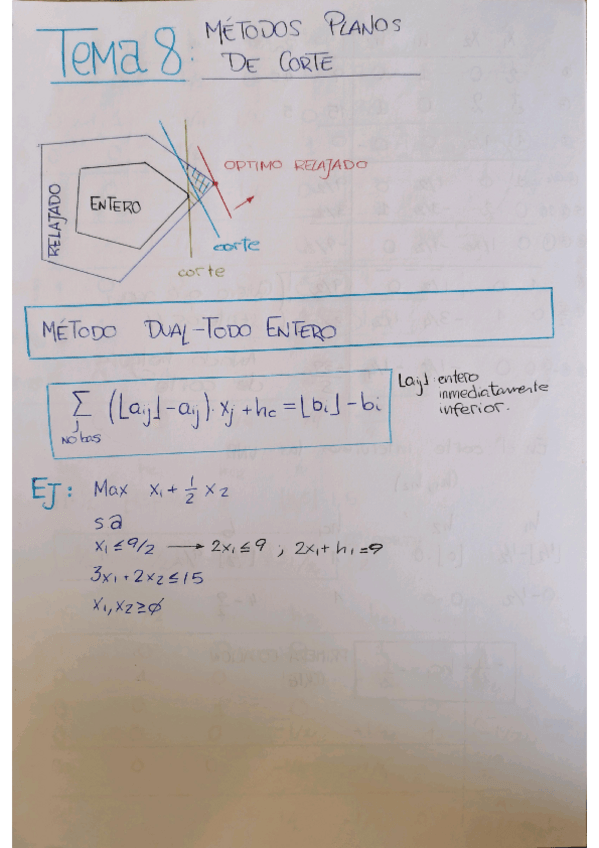 Tema 8: MÉTODOS PLANOS
DE CORTE
OPTIMO RELAJADO
RELAJADO
ENTERO
corte
corte
MÉTODO DUAL-TODO ENTERO
∑ (⌊aij⌋-aij)·xj + hc = ⌊bi⌋-bi
j
NO bas
⌊aij⌋ entero
inmediatamente
inferior.
EJ: Max x1 + 1/2 x2
sa
x1 ≤ 9/2 → 2x1 ≤ 9 ; 2x1 + h1 = 9
3x1 + 2x2 ≤ 15
x1, x2 ≥ 0